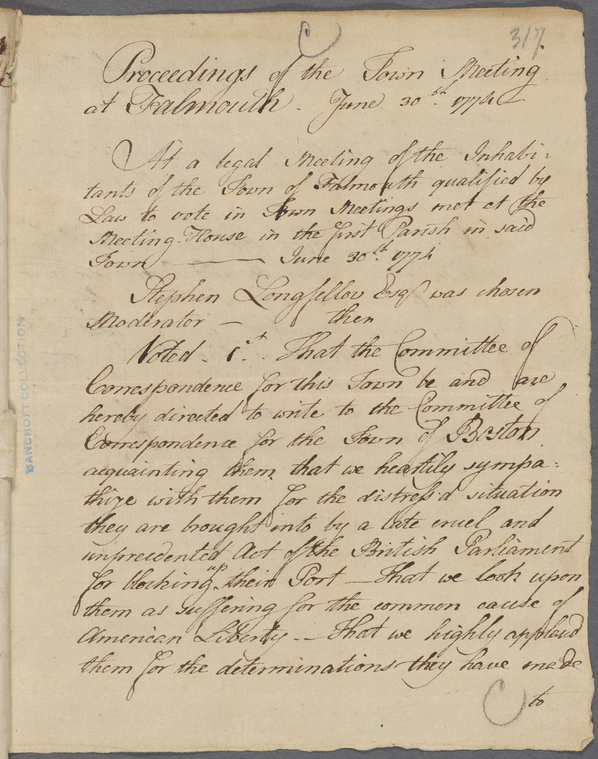 317.
Proceedings of the Town Meeting
at Falmouth. June 30th. 1774
At a legal Meeting of the Inhabi-
tants of the Town of Falmouth qualified by
Law to vote in Town Meetings met at the
Meeting-House in the first Parish in said
Town ——— June 30th 1774
Stephen Longfellow Esqr was chosen
Moderator — then
Voted. 1st. That the Committee of
Correspondence for this Town be and are
hereby directed to write to the Committee of
Correspondence for the Town of Boston
acquainting them, that we heartily sympa-
thize with them for the distress'd situation
they are brought into by a late cruel and
unprecedented Act of the British Parliament
for blocking up their Port — That we look upon
them as suffering for the common cause of
American Liberty. — That we highly applaud
them for the determinations they have made
to
BANCROFT COLLECTION